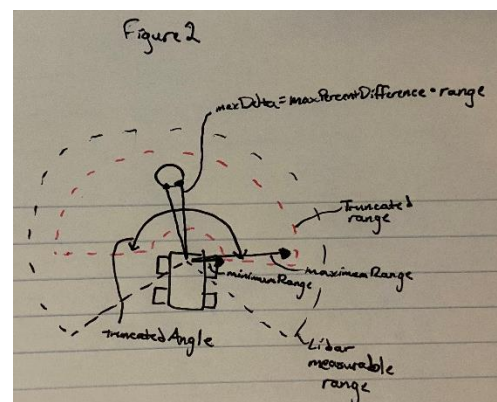 Figure 2
maxDelta = maxPercentDifference • range
Truncated
range
minimumRange
maximumRange
truncatedAngle
Lidar
measurable
range